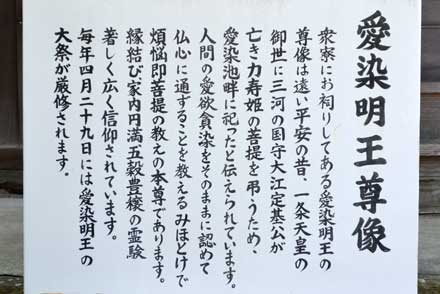 愛染明王尊像
衆寮にお祠りしてある愛染明王の
尊像は遠い平安の昔、一条天皇の
御世に三河の国守大江定基公が
亡き力寿姫の菩提を弔うため、
愛染池畔に祀ったと伝えられています。
人間の愛欲貪染をそのままに認めて
仏心に通ずることを教えるみほとけで
煩悩即菩提の教えの本尊であります。
縁結び、家内円満、五穀豊穣の霊験
著しく広く信仰されています。
毎年四月二十九日には愛染明王の
大祭が厳修されます。